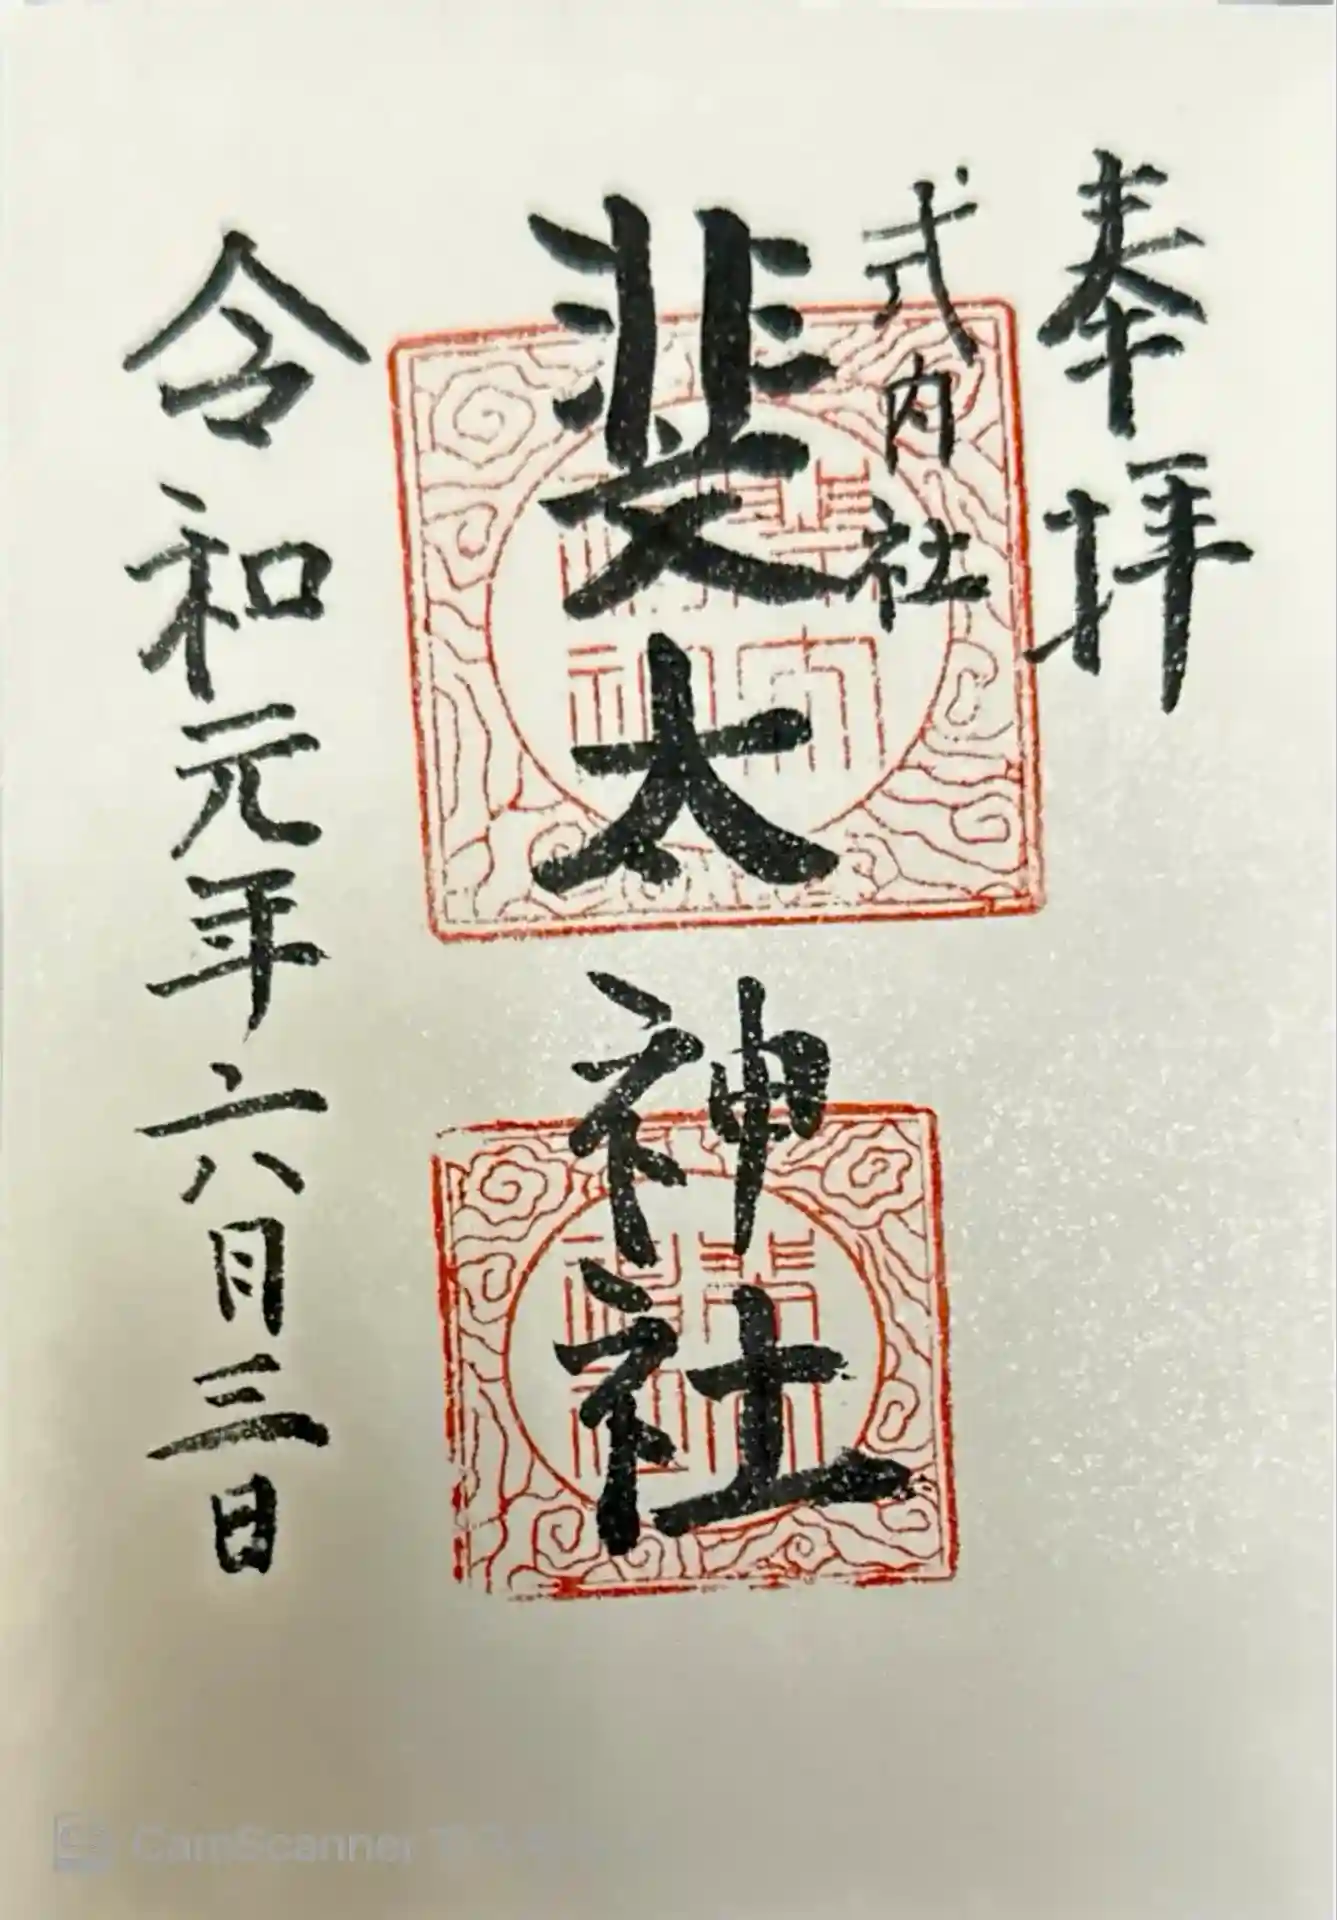 奉拝
式内社
斐太神社
令和元年六月三日
CamScanner